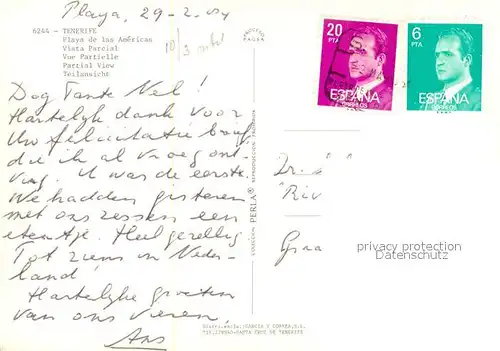 Playa, 29-2-84
6244 - TENERIFE
Playa de las Américas
Vista Parcial
Vue Partielle
Partial View
Teilansicht
PROCESO
PAURA
10/3
Dag Tante Nel!
Hartelijk dank voor
Uw felicitatie brief,
die ik al vroeg ont-
ving. U was de eerste.
We hadden gisteren
met ons zessen een
etentje. Heel gezellig
Tot ziens in Neder-
land!
Hartelijke groeten
van ons vieren,
Ans
COLECCION PERLA® REPRODUCCION PROHIBIDA
GARCIA Y CORREA, S.L.
SANTA CRUZ DE TENERIFE
20
PTA
ESPAÑA
CORREOS
6
PTA
ESPAÑA
CORREOS
"Riv
Graa
privacy protection
Datenschutz